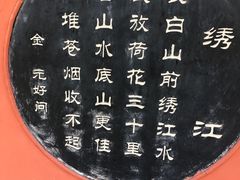 绣江
白山前绣江水
放荷花三十里
山水底山更佳
堆苍烟收不起
金 元好问